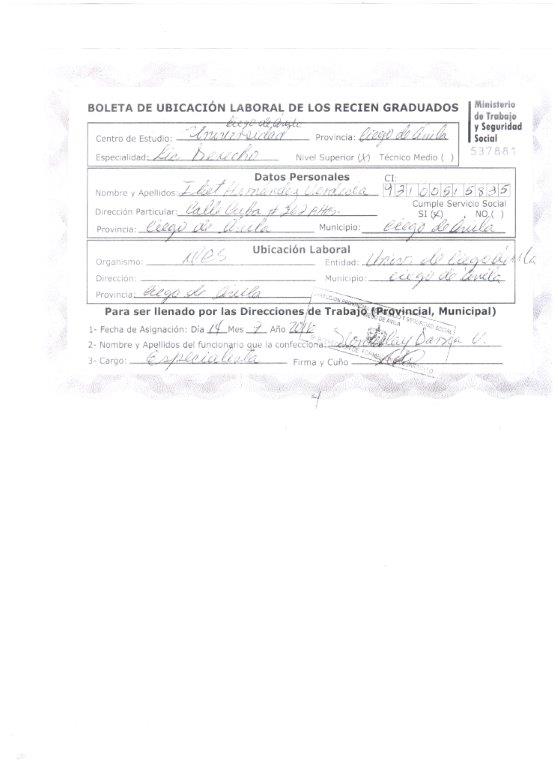 BOLETA DE UBICACIÓN LABORAL DE LOS RECIEN GRADUADOS
Ministerio
de Trabajo
y Seguridad
Social
537881
Ciego de Avila
Centro de Estudio: Universidad Provincia: Ciego de Avila
Especialidad: Lic Derecho Nivel Superior (x) Técnico Medio ( )
Datos Personales CI:
Nombre y Apellidos: Hernández 93100515835
Dirección Particular: Calle Cuba # 262 Cumple Servicio Social
SI (x) NO.( )
Provincia: Ciego de Avila Municipio: Ciego de Avila
Ubicación Laboral
Organismo: MES Entidad: Univ. de Ciego de Avila
Dirección: Municipio: Ciego de Avila
Provincia: Ciego de Avila
Para ser llenado por las Direcciones de Trabajo (Provincial, Municipal)
1- Fecha de Asignación: Día 14 Mes 7 Año 2016
2- Nombre y Apellidos del funcionario que la confecciona:
3- Cargo: Especialista Firma y Cuño